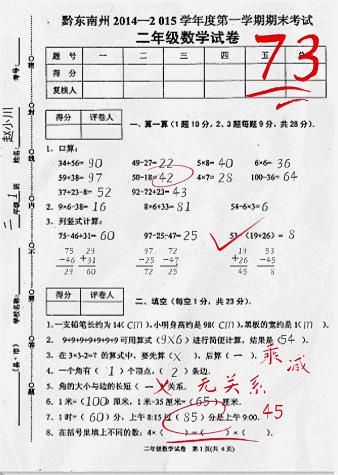 黔东南州 2014—2015 学年度第一学期期末考试
二年级数学试卷
73
题 号 一 二 三 四 五
得 分
复核人
得分 评卷人
一、算一算(1题10分,2、3题每题9分,共28分)。
1. 口算:
34+56= 90 49-27=22 5×8= 40 6×6= 36
59+38= 97 50-18=42 4×7= 28 100-36= 64
37+23-8= 52 92-72+23= 43
2. 9×6-38= 16 8×6+33= 81 54-6×3= 6
3. 列竖式计算:
75-46+31= 60 97-25-47= 25 53-(19+26)= 8
75 29 97 72 19 53
-46 +31 -25 -47 +26 -45
29 60 72 25 45 8
得分 评卷人
二、填空(每空1分,共23分)。
1.一支铅笔长约为 14( cm ),小明身高约是 98( cm ),黑板的宽约是 1( m )。
2. 9+9+9+9+9+9可用算式( 9×6 )进行简便计算,结果是( 54 )。
3. 在 3×3-2=7 的算式中,要先算( × ),后算( 一 )。 乘 减
4. 一个角有( 1 )个顶点,( 2 )条边。
5. 角的大小与边的长短( 一 )关系。 无关系
6. 1米=(100)厘米,1米-35厘米=(65)厘米。
7. 1时=( 60 )分,上午8:15过( 85 )分是上午9:00。 45
8. 在括号里填上不同的数:4×( )=( )×( )。
二年级数学试卷 第1页(共4页)
考号:
姓名: 赵小川
二 年级 1 班
学校名称:
县(市)
密 封 线 内 不 要 答 题